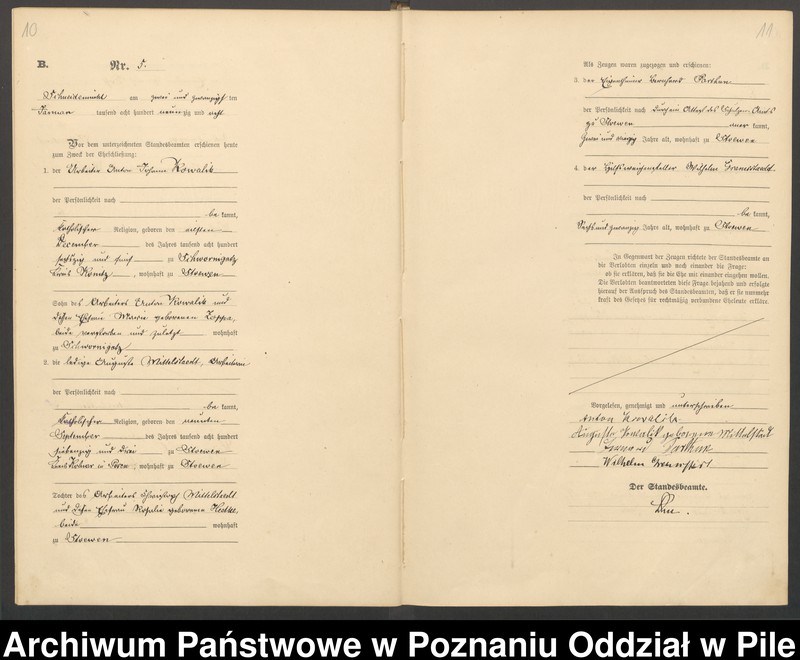 10
B.
Nr. 5.
Schneidemühl am zwei und zwanzigsten
Januar tausend acht hundert neunzig und acht
Vor dem unterzeichneten Standesbeamten erschienen heute
zum Zweck der Eheschließung:
1. der Arbeiter Anton Johann Kowalik
der Persönlichkeit nach
be kannt,
katholischer Religion, geboren den
December des Jahres tausend acht hundert
sechszig und fünf zu Schwornigatz
Kreis Konitz, wohnhaft zu Stoewen
Sohn des Arbeiters Anton Kowalik und
dessen Ehefrau Marie geborenen
beide verstorben und zuletzt wohnhaft
zu Schwornigatz
2. die ledige Auguste Mittelstedt, Arbeiterin
der Persönlichkeit nach
be kannt,
katholischer Religion, geboren den neunten
September des Jahres tausend acht hundert
siebenzig und drei zu Stoewen
Kreis Kolmar in Posen, wohnhaft zu Stoewen
Tochter des Arbeiters Mittelstedt
und dessen Ehefrau Rosalie geborene
beide wohnhaft
zu Stoewen
11
Als Zeugen waren zugezogen und erschienen:
3. der Eigenthümer Bernhard
der Persönlichkeit nach durch ein Attest des Schulzen-Amts
zu Stoewen aner kannt,
zwei und vierzig Jahre alt, wohnhaft zu Stoewen
4. der Hülfsweichensteller Wilhelm
der Persönlichkeit nach
be kannt,
sechs und zwanzig Jahre alt, wohnhaft zu Stoewen
In Gegenwart der Zeugen richtete der Standesbeamte an
die Verlobten einzeln und nach einander die Frage:
ob sie erklären, daß sie die Ehe mit einander eingehen wollen.
Die Verlobten beantworteten diese Frage bejahend und erfolgte
hierauf der Ausspruch des Standesbeamten, daß er sie nunmehr
kraft des Gesetzes für rechtmäßig verbundene Eheleute erkläre.
Vorgelesen, genehmigt und unterschrieben
Anton Kowalik
Auguste Kowalik geborene Mittelstädt
Wilhelm
Der Standesbeamte.
Archiwum Państwowe w Poznaniu Oddział w Pile